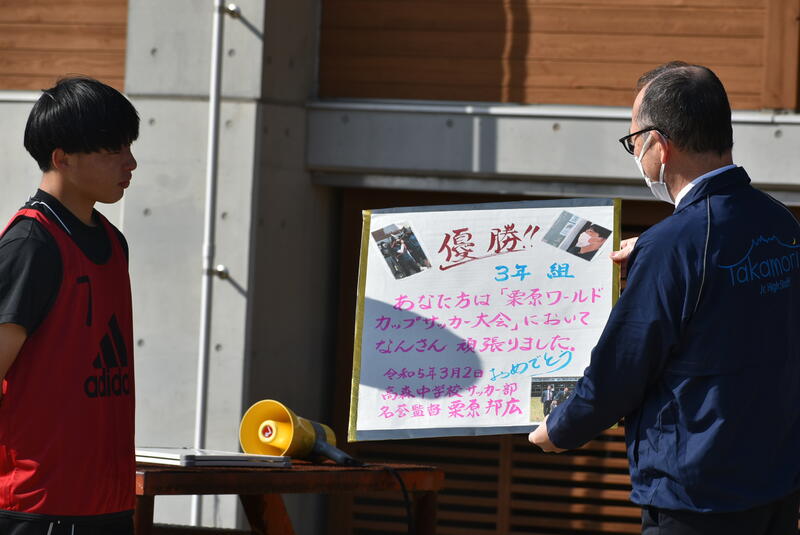 優勝!!
3年 組
あなた方は「栗原ワールド
カップサッカー大会」において
なんさん 頑張りました。
令和5年3月2日 おめでとう
高森中学校サッカー部
名誉監督 栗原邦広
7
adidas
Takamori
Jr. High Staff